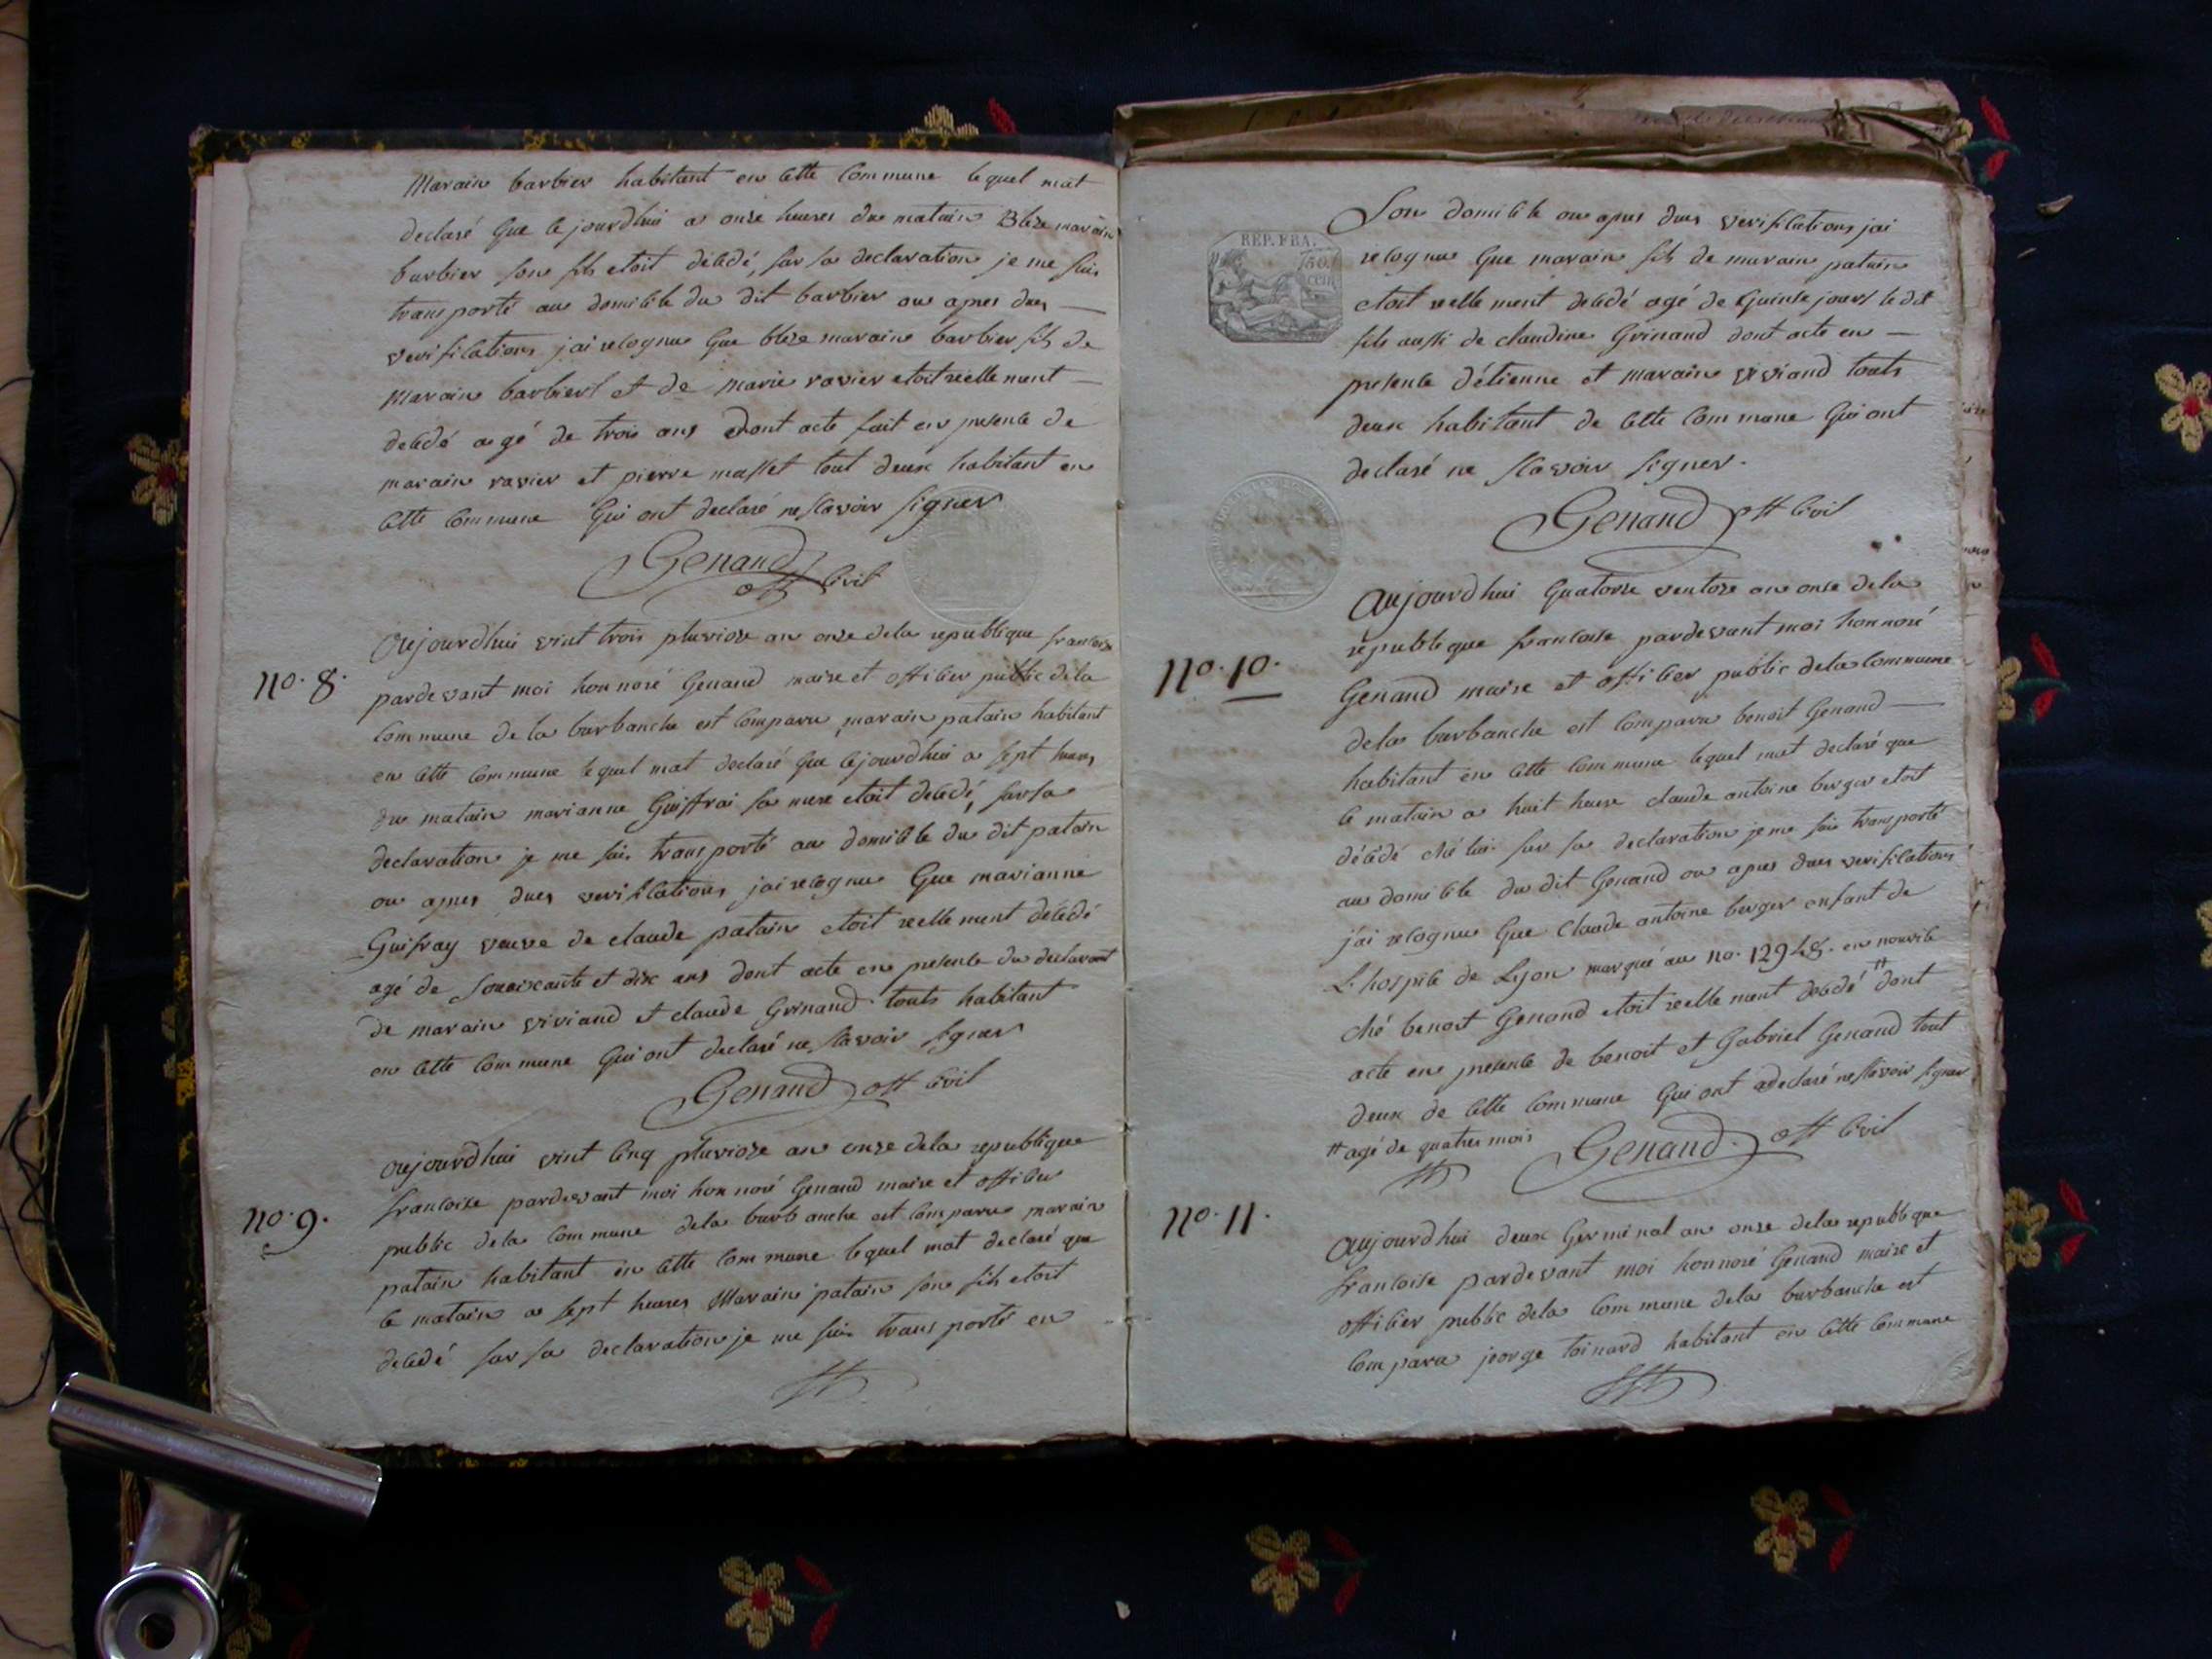 Marain barbier habitant en cette commune lequel mat
declaré que cejourdhui a onse heures du matain Blèze marain
barbier son fils etoit décédé, sur sa declaration je me suis
transporté au domicile du dit barbier ou apres dues
verifications jai recognu que blèze marain barbier fils de
marain barbier et de marie ravier etoit réelle ment
decédé agé de trois ans dont acte fait en presence de
marain ravier et pierre masset tout deux habitant en
cette commune qui ont declaré ne scavoir signer
Genand
off civil
no. 8.
Aujourdhui vint trois pluviose an onze de la republique francoise
pardevant moi honnoré Genand maire et officier public de la
commune de la burbanche est comparu marain patain habitant
en cette commune lequel mat declaré que cejourdhui a sept heures
du matain marianne Guiffrai sa mere etoit decédé, sur sa
declaration je me suis transporté au domicile du dit patain
ou apres dues verifications jai recognu que marianne
Guifray veuve de claude patain etoit réelle ment décédé
agé de souaixante et dix ans dont acte en presence du declarant
de marain viviand et claude Grinand touts habitant
en cette commune qui ont declaré ne scavoir signer
Genand off civil
no. 9.
aujourdhui vint cinq pluviose an onze de la republique
francoise pardevant moi honnoré Genand maire et officier
public de la commune de la burbanche est comparu marain
patain habitant en cette commune lequel mat declaré que
le matain a sept heures Marain patain son fils etoit
decédé sur sa declaration je me suis transporté en
REP. FRA.
son domicile ou apres dues verifications jai
recognu que marain fils de marain patain
etoit réelle ment decédé agé de quinse jours le dit
fils aussi de claudine Grinand dont acte en
presence d'étienne et marain viviand touts
deux habitant de cette commune qui ont
declaré ne scavoir signer.
Genand off civil
no. 10.
Aujourdhui quatorse ventose an onse de la
république francoise pardevant moi honnoré
Genand maire et officier public de la commune
de la burbanche est comparu benoit Genand
habitant en cette commune lequel mat declaré que
le matain a huit heure claude antoine berger etoit
décédé ché lui sur sa declaration je me suis transporté
au domicile du dit Genand ou apres dues verifications
j'ai recognu que Claude antoine berger enfant de
L'hospice de Lyon marqué au no. 12948. en nourice
ché benoit Genand etoit réelle ment decédé # dont
acte en presence de benoit et Gabriel Genand tout
deux de cette commune qui ont declaré ne scavoir signer
# agé de quatres mois
Genand off civil
no. 11.
Aujourdhui deux Germinal an onse de la republique
francoise pardevant moi honnoré Genand maire et
officier public de la commune de la burbanche est
comparu jeorge toinard habitant en cette commune